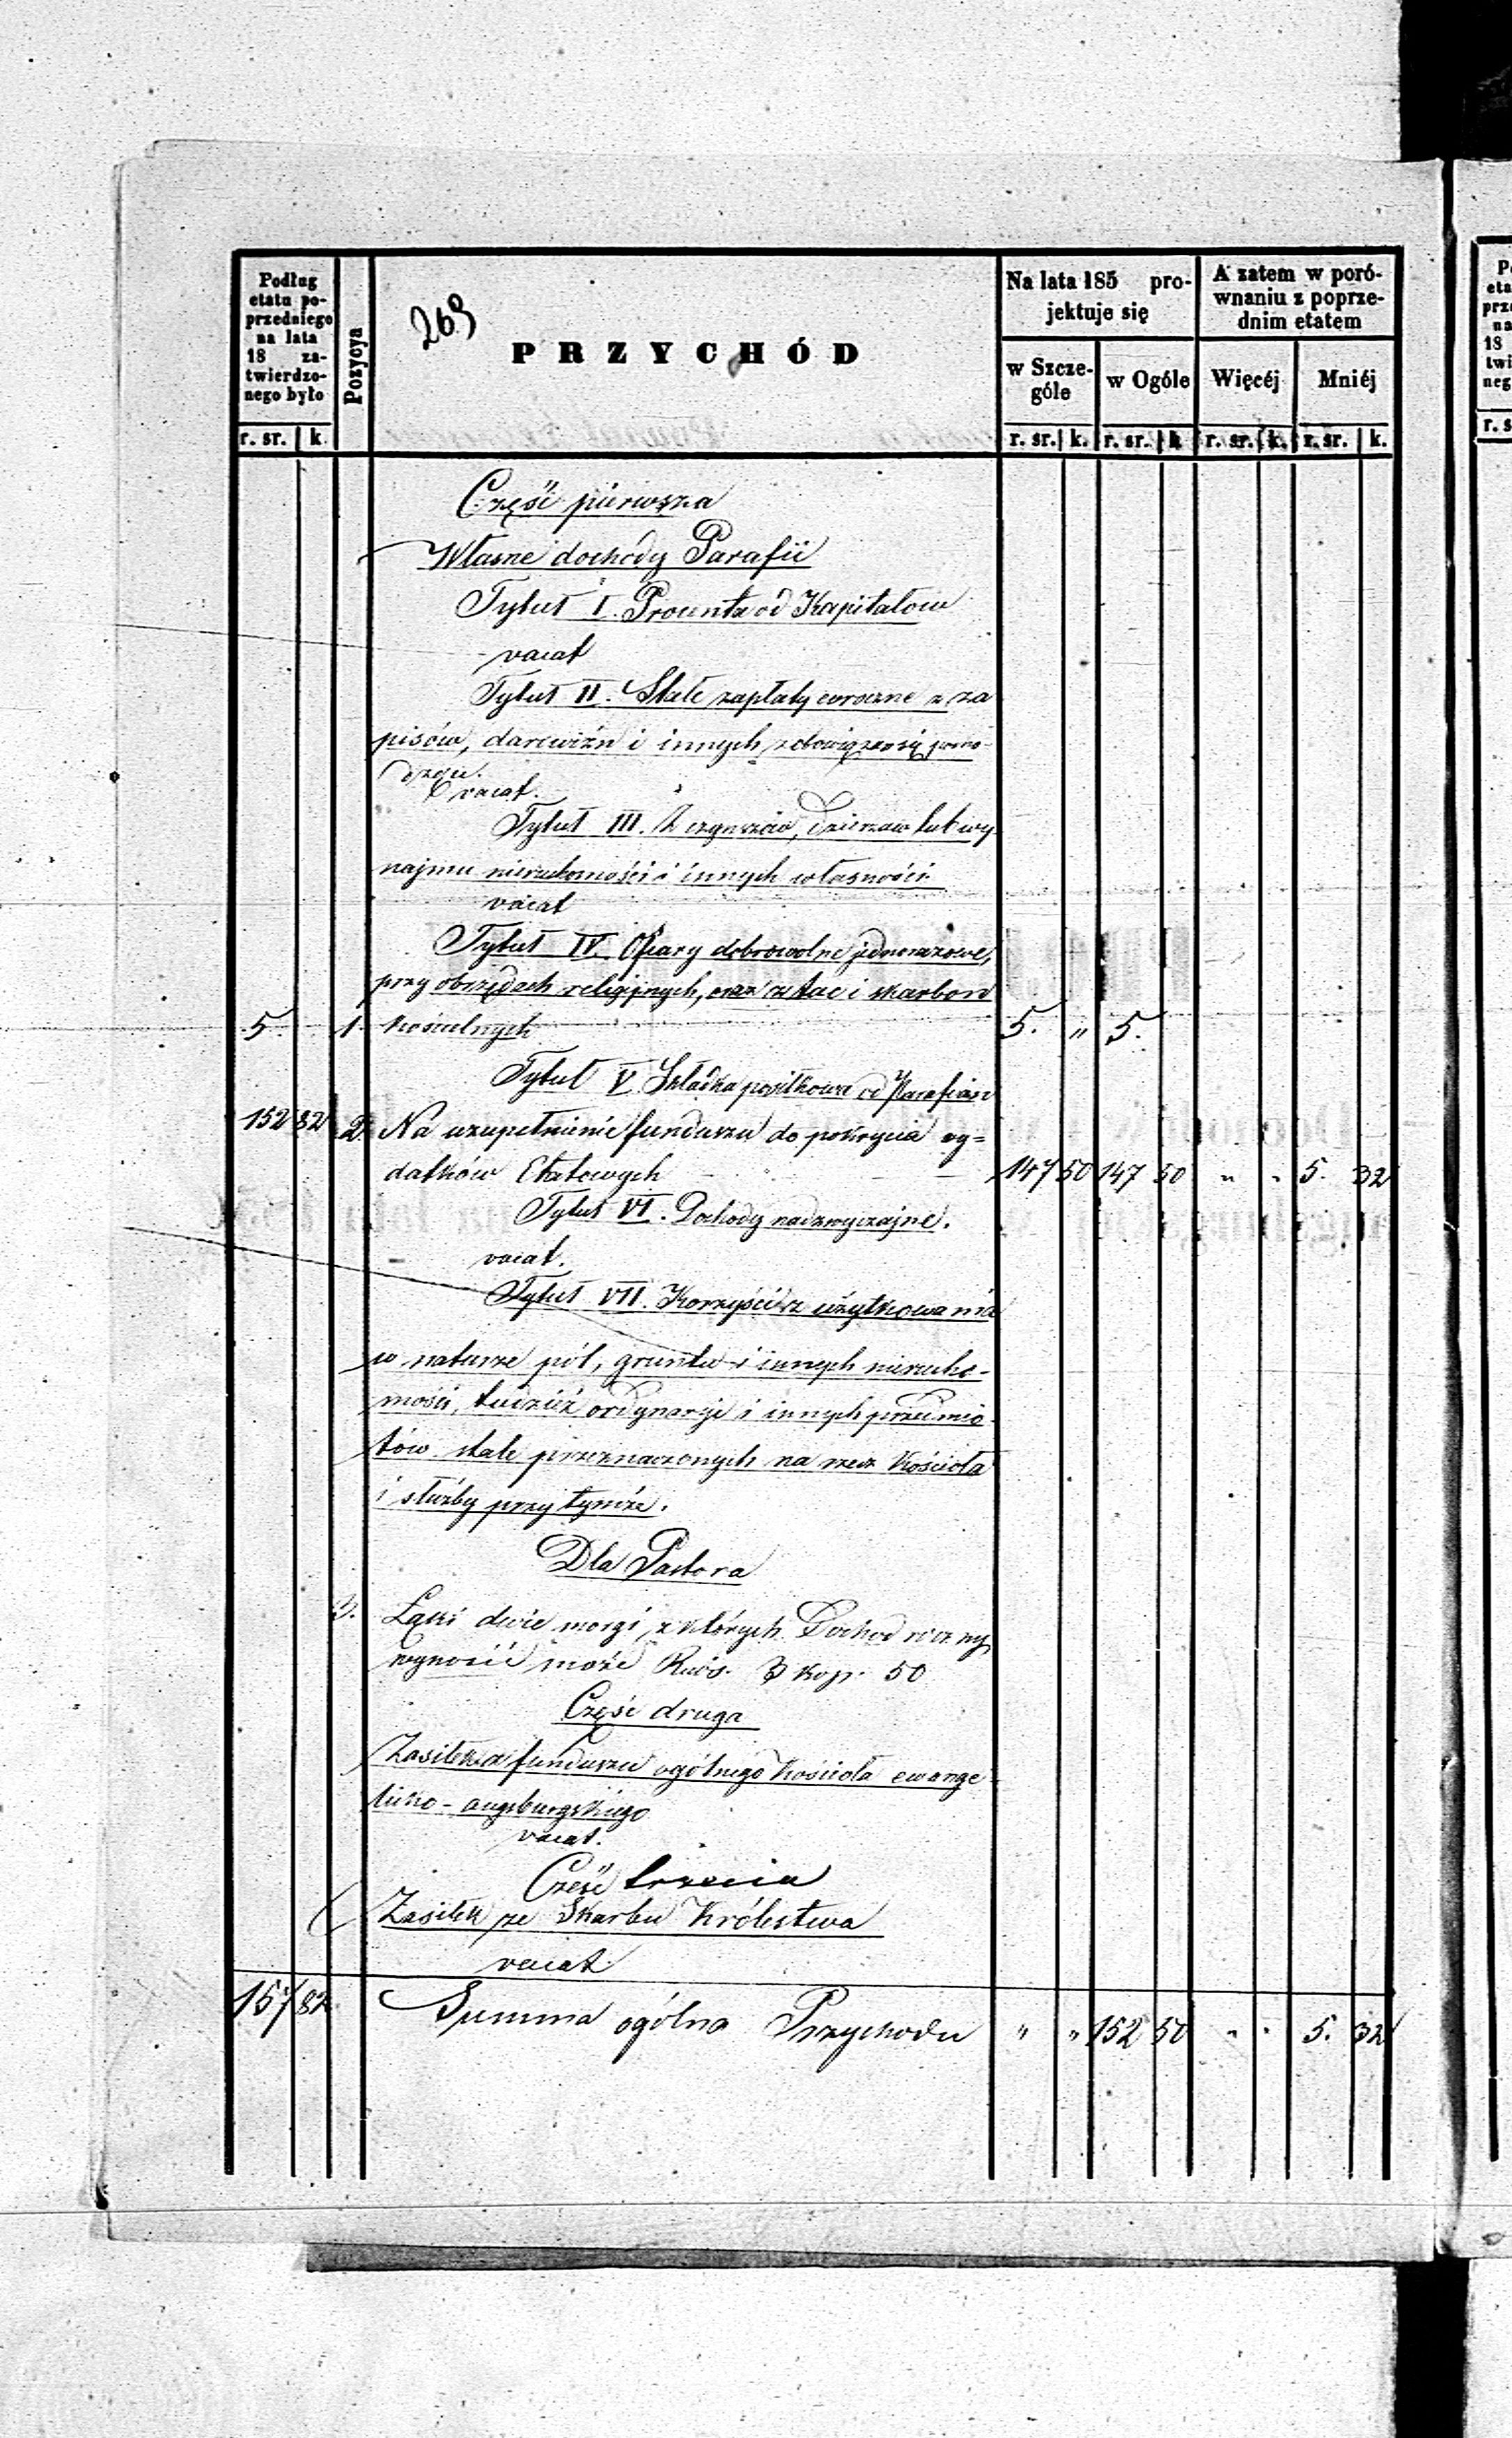 Podług
etatu po-
przedniego
na lata
18 za-
twierdzo-
nego było
r. sr. k.
Pozycya
269
PRZYCHÓD
Na lata 185 pro-
jektuje się
w Szcze-
góle
w Ogóle
r. sr. k. r. sr. k
A zatem w poró-
wnaniu z poprze-
dnim etatem
Więcéj Mniéj
r. sr. k. r. sr. k.
Część pierwsza
Własne dochody Parafii
Tytuł I. Procenta od Kapitałow
vacat
Tytuł II. Stałe zapłaty coroczne z za
pisów, darowizn i innych
vacat.
Tytuł III. Z czynszów, dzierzaw lub wy
najmu nieruchomości i innych własności
vacat
Tytuł IV. Ofiary dobrowolne jednorazowe,
przy obrzędach religijnych, oraz z tac i skarbon
5 1. kościelnych 5. " 5.
Tytuł V. Składka posiłkowa od Parafian
152 82 2. Na uzupełnienie funduszu do pokrycia wy=
datków Etatowych 147 50 147 50 " " 5. 32
Tytuł VI. Dochody nadzwyczajne.
vacat.
Tytuł VII. Korzyści z użytkowania
w naturze pól, gruntu i innych nierucho-
mości, tudzież ordynaryi i innych przedmio
tów stale przeznaczonych na rzecz Kościoła
i służby przy tymże.
Dla Pastora
3. Łąki dwie morgi, z których Dochod roczny
wynosić może Rubs. 3 kop. 50
Część druga
Zasiłek z funduszu ogólnego Kościoła ewange
licko-augsburgskiego
vacat.
Część trzecia
Zasiłek ze Skarbu Królestwa
vacat
157 82 Summa ogólna Przychodu " " 152 50 " " 5. 32